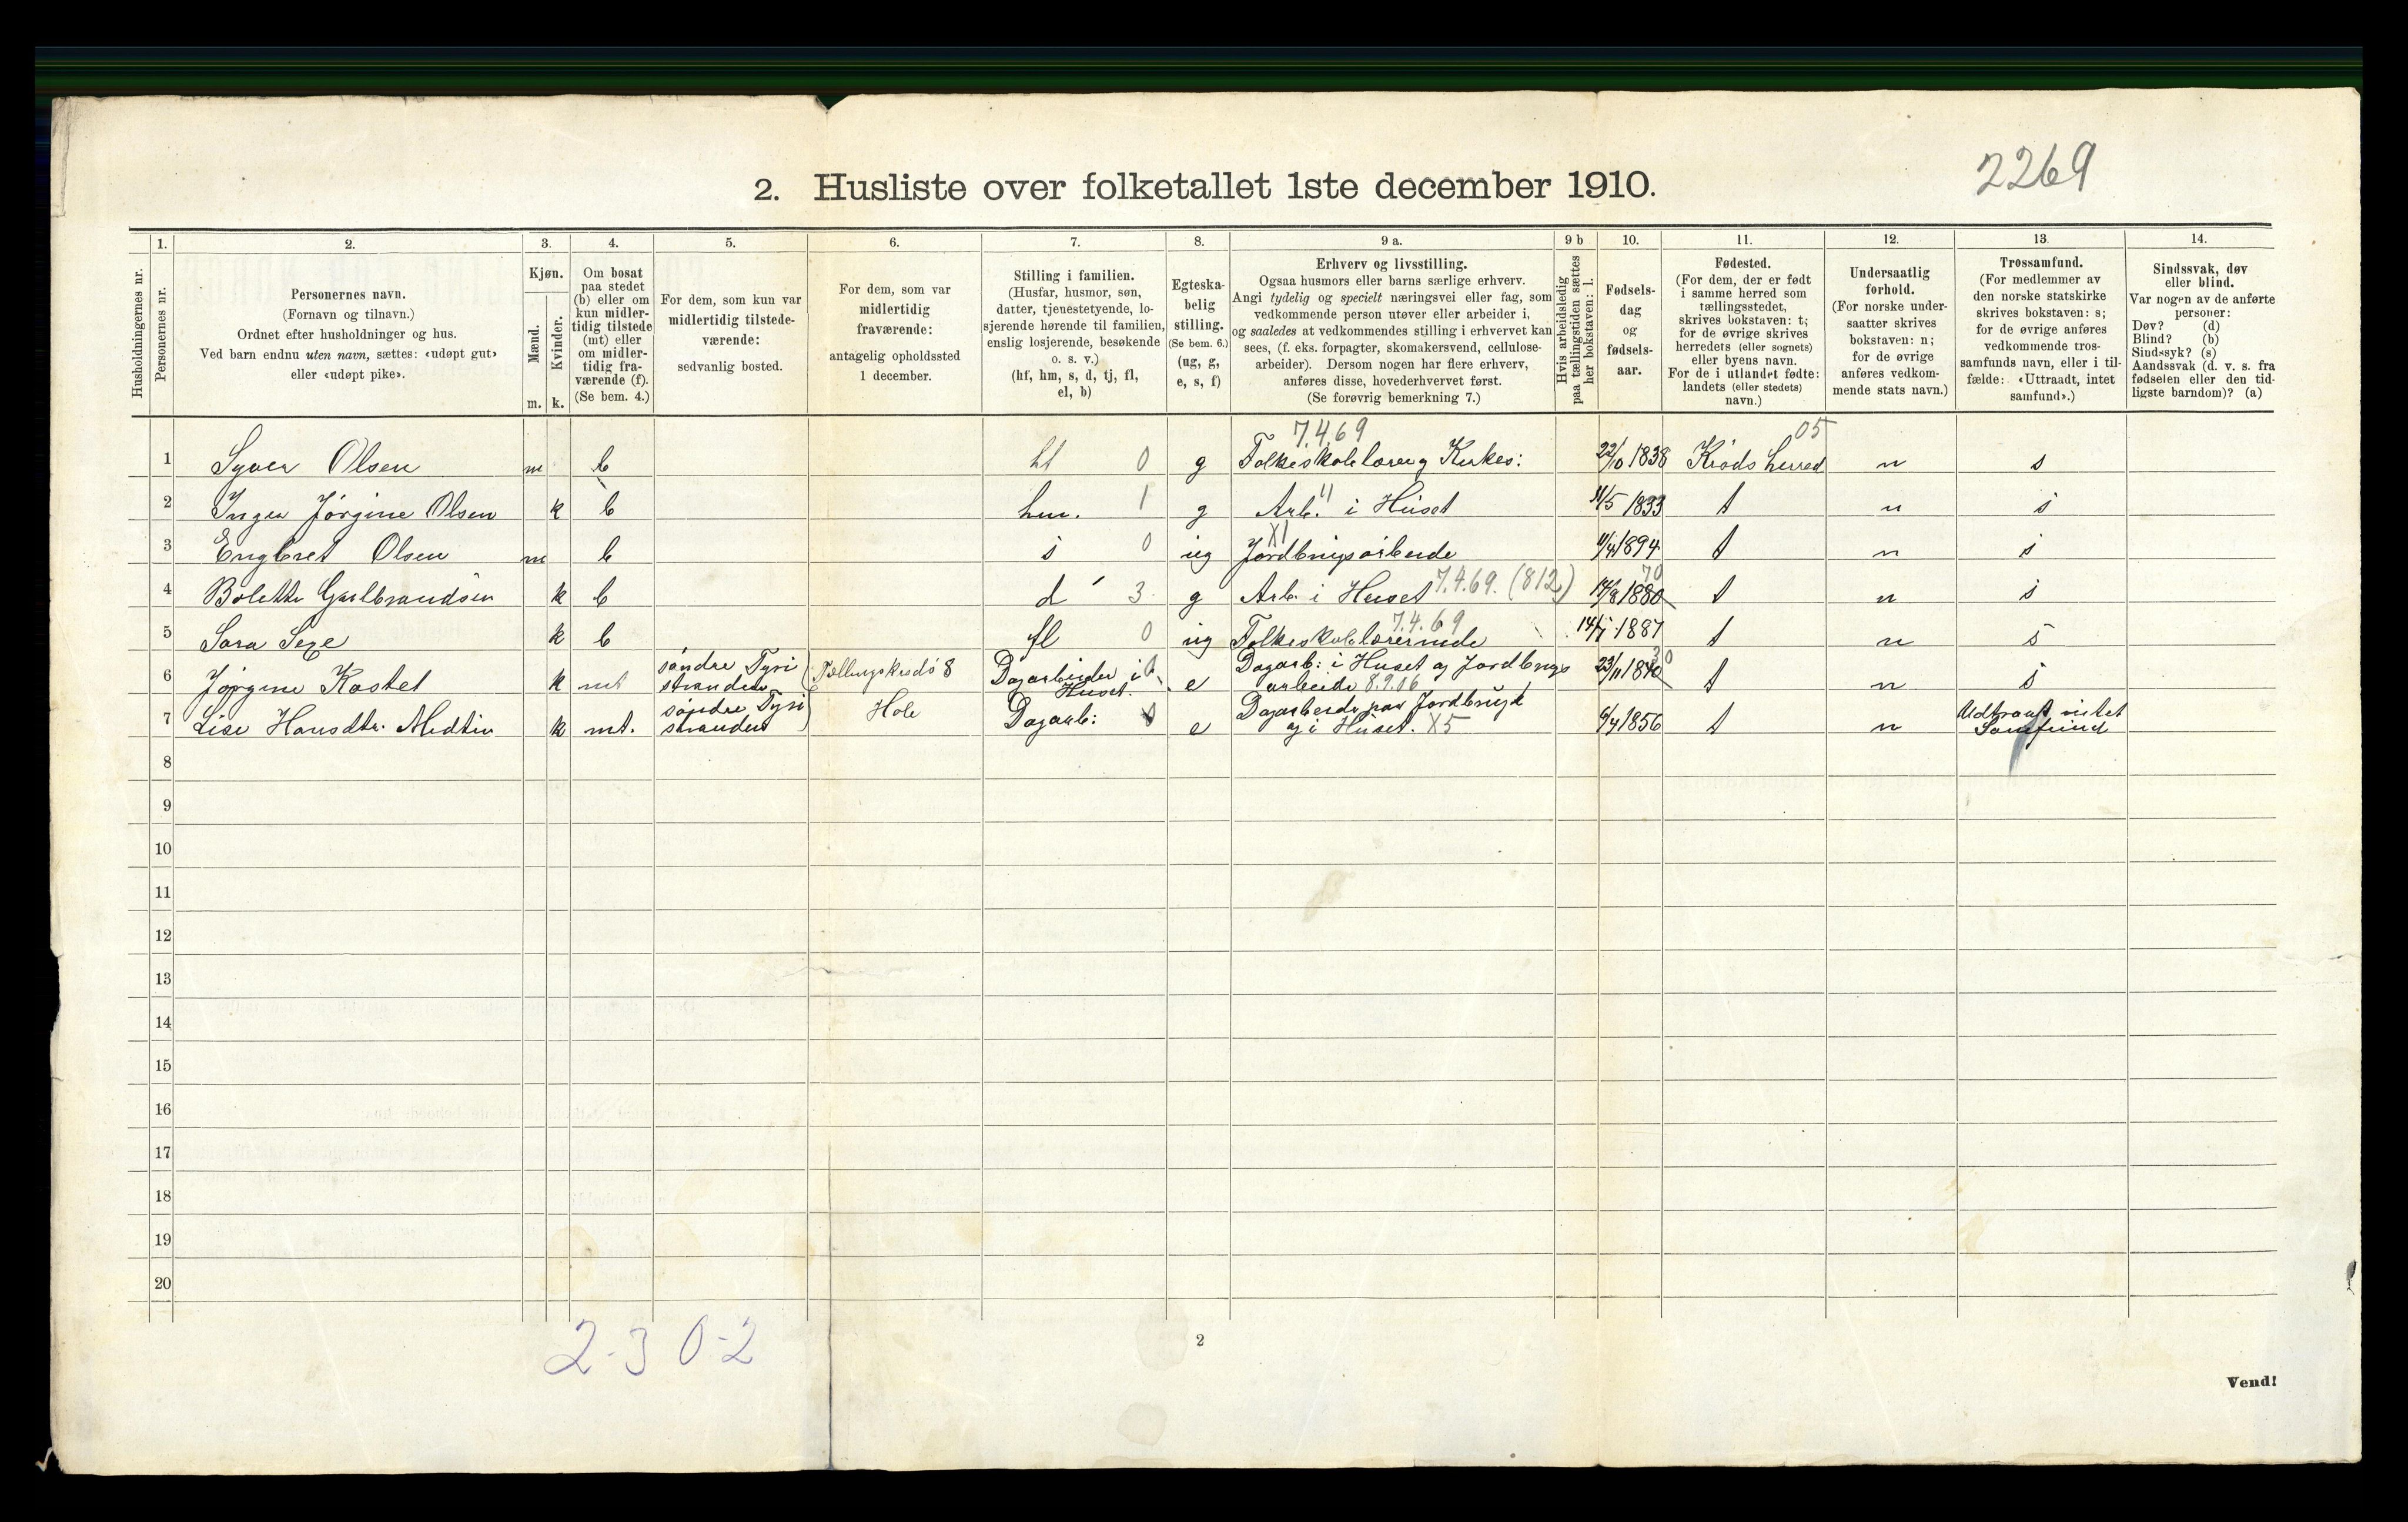 2269
2. Husliste over folketallet 1ste december 1910.
1. 2. 3. 4. 5. 6. 7. 8. 9 a. 9 b 10. 11. 12. 13. 14.
Husholdningernes nr.
Personernes nr.
Personernes navn.
(Fornavn og tilnavn.)
Ordnet efter husholdninger og hus.
Ved barn endnu uten navn, sættes: «udøpt gut»
eller «udøpt pike».
Kjøn.
Mænd.
Kvinder.
m. k.
Om bosat
paa stedet
(b) eller om
kun midler-
tidig tilstede
(mt) eller
om midler-
tidig fra-
værende (f).
(Se bem. 4.)
For dem, som kun var
midlertidig tilstede-
værende:
sedvanlig bosted.
For dem, som var
midlertidig
fraværende:
antagelig opholdssted
1 december.
Stilling i familien.
(Husfar, husmor, søn,
datter, tjenestetyende, lo-
sjerende hørende til familien,
enslig losjerende, besøkende
o. s. v.)
(hf, hm, s, d, tj, fl,
el, b)
Egteska-
belig
stilling.
(Se bem. 6.)
(ug, g,
e, s, f)
Erhverv og livsstilling.
Ogsaa husmors eller barns særlige erhverv.
Angi tydelig og specielt næringsvei eller fag, som
vedkommende person utøver eller arbeider i,
og saaledes at vedkommendes stilling i erhvervet kan
sees, (f. eks. forpagter, skomakersvend, cellulose-
arbeider). Dersom nogen har flere erhverv,
anføres disse, hovederhvervet først.
(Se forøvrig bemerkning 7.)
Hvis arbeidsledig
paa tællingstiden sættes
her bokstaven: l.
Fødsels-
dag
og
fødsels-
aar.
Fødested.
(For dem, der er født
i samme herred som
tællingsstedet,
skrives bokstaven: t;
for de øvrige skrives
herredets (eller sognets)
eller byens navn.
For de i utlandet fødte:
landets (eller stedets)
navn.)
Undersaatlig
forhold.
(For norske under-
saatter skrives
bokstaven: n;
for de øvrige
anføres vedkom-
mende stats navn.)
Trossamfund.
(For medlemmer av
den norske statskirke
skrives bokstaven: s;
for de øvrige anføres
vedkommende tros-
samfunds navn, eller i til-
fælde: «Uttraadt, intet
samfund».)
Sindssvak, døv
eller blind.
Var nogen av de anførte
personer:
Døv? (d)
Blind? (b)
Sindssyk? (s)
Aandssvak (d. v. s. fra
fødselen eller den tid-
ligste barndom)? (a)
7.4.69 05
1 Syver Olsen m b hf 0 g Folkeskolelærer og Kirkes: 22/10 1838 Krødsherred n s
2 Inger Jørgine Olsen k b hm. 1 g Arb. i Huset 11/5 1833 t n s
X1
3 Engbret Olsen m b s 0 ug Jordbrugsarbeide 11/4 1894 t n s
4 Bolette Gulbrandsen k b d 3 g Arb. i Huset 7.4.69. (812) 14/8 1880 70 t n s
7.4.69
5 Sara Sexe k b fl 0 ug Folkeskolelærerinde 1887 t n s
6 Jørgine Kastet k mt søndre Tyri
stranden Tællingskreds 8 Dagarbeider i
Huset. e Dagarb: i Huset og Jordbrugs
arbeide 8.9.06 23/11 1840 30 t n s
7 Lise Hansdtr. k mt. søndre Tyri
stranden Hole Dagarb: e Dagarbeide paa Jordbruget
og i Huset. X5 6/4 1856 t n Udtraadt intet
Samfund
8
9
10
11
12
13
14
15
16
17
18
19
20
2-3 0-2
2
Vend!